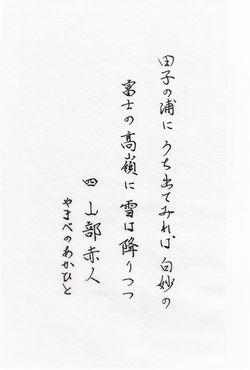 田子の浦に うち出でみれば 白妙の
富士の高嶺に 雪は降りつつ
四 山部赤人
やまべのあかひと